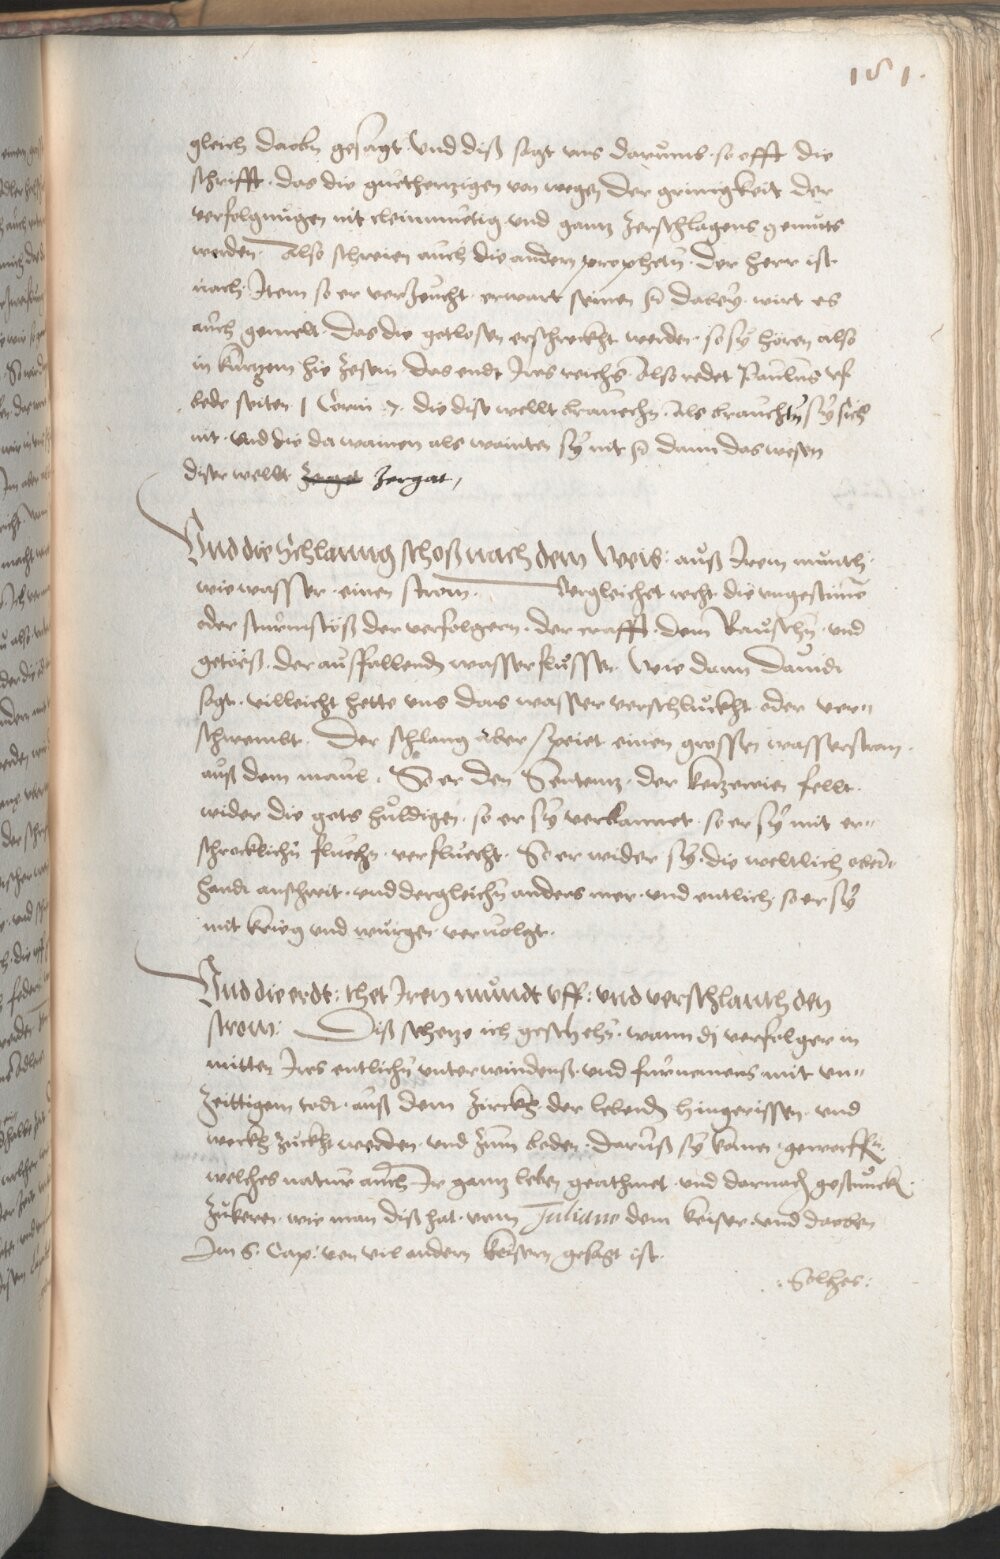 181.
gleich daobn gesagt. Und diß sagt uns darumb so offt die
schrifft. das die guethertzigen von wegen der gringkeit der
verfolgungen nit cleinmuetig und gantz zerschlagens gemuts
werden. Also schreien auch die andern prophetn. Der herr ist
nach. Item so er verzeucht erwart seinen dabey wirt es
auch gemelt. Das die gotlosen erschreckht werden. so sy hören also
in kurtzem hie zesein das endt Ires reichs. Also redet Paulus uf
bede seiten 1 Corin. 7. die dise wellt brauchn. Als brauchtn sy sich
nit. und die da wainen als wainten sy nit dann das wesen
diser wellt zergat,
Und die Schlanng schoß nach dem Weib: auß Irem mundt
wie wasser einen strom. Vergleichet recht die ungestime
oder sturmstöß der verfolgern. der crafft. dem Rauschn und
getöeß. der ausfallendn wasserflussen. Wie dann Dauid
sagt. villeicht hette uns das wasser verschluckht oder ver=
schwembt. Der schlang aber speiet einen grossen wasserstrom.
auß dem maul. So er den Sententz der ketzereien fellt.
wider die gots huldigen. so er sy verbannet. so er sy mit er=
schrocklichn fluechn verfluecht. So er wider sy die weltlich ober=
handt anschreit. und dergleichn anders mer. und entlich so er sy
mit krieg und würgen vervolgt.
Und die erdt: thet Iren mundt uff: und verschlanth den
strom: Diß schetze ich geschehn. wann di verfolger in
mitten Ires entlichn unterwindenß und furnemens mit un=
zeittigem todt. auß dem zirckh der lebendn hingerissen. und
werckh zuckh werden. und zum boden. daruß sy komen geworffn.
welches nature auch Ir gantz leben geathmet. und darnach geschmeckt.
zukeren. wie man diß hat. vom Juliano dem keiser. und daoben
Im 6. Cap: von vil andern keisern gesagt ist.
:Solhes: